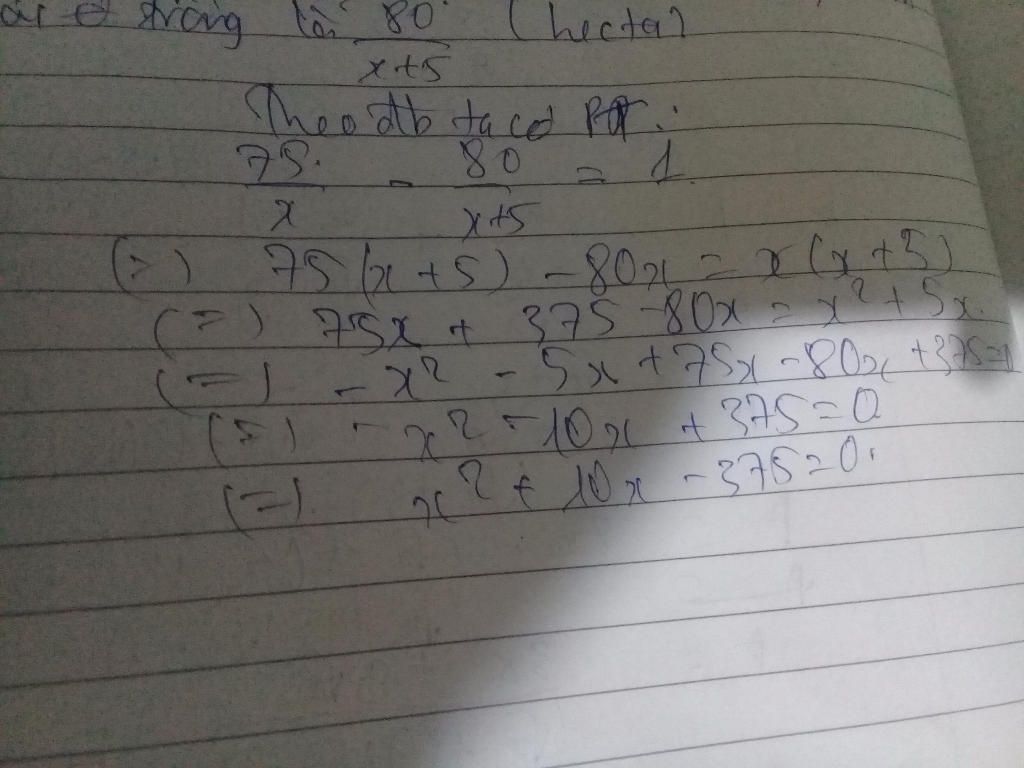 trồng là 80/(x+5) (hecta)
Theo đb ta có PT:
75/x - 80/(x+5) = 1
(=) 75(x+5) - 80x = x(x+5)
(=) 75x + 375 - 80x = x² + 5x
(=) - x² - 5x + 75x - 80x + 375 =
(=) - x² - 10x + 375 = 0
(=) x² + 10x - 375 = 0.